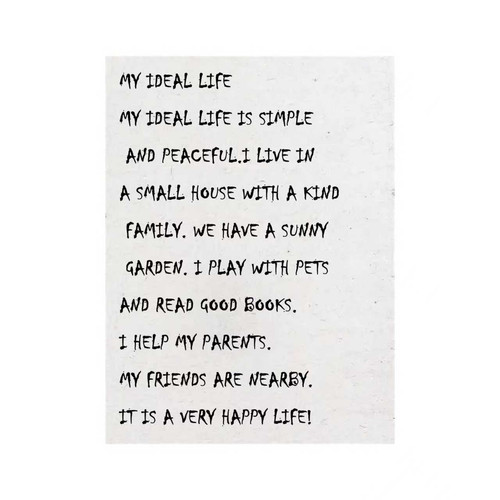 MY IDEAL LIFE
MY IDEAL LIFE IS SIMPLE
AND PEACEFUL.I LIVE IN
A SMALL HOUSE WITH A KIND
FAMILY. WE HAVE A SUNNY
GARDEN. I PLAY WITH PETS
AND READ GOOD BOOKS.
I HELP MY PARENTS.
MY FRIENDS ARE NEARBY.
IT IS A VERY HAPPY LIFE!